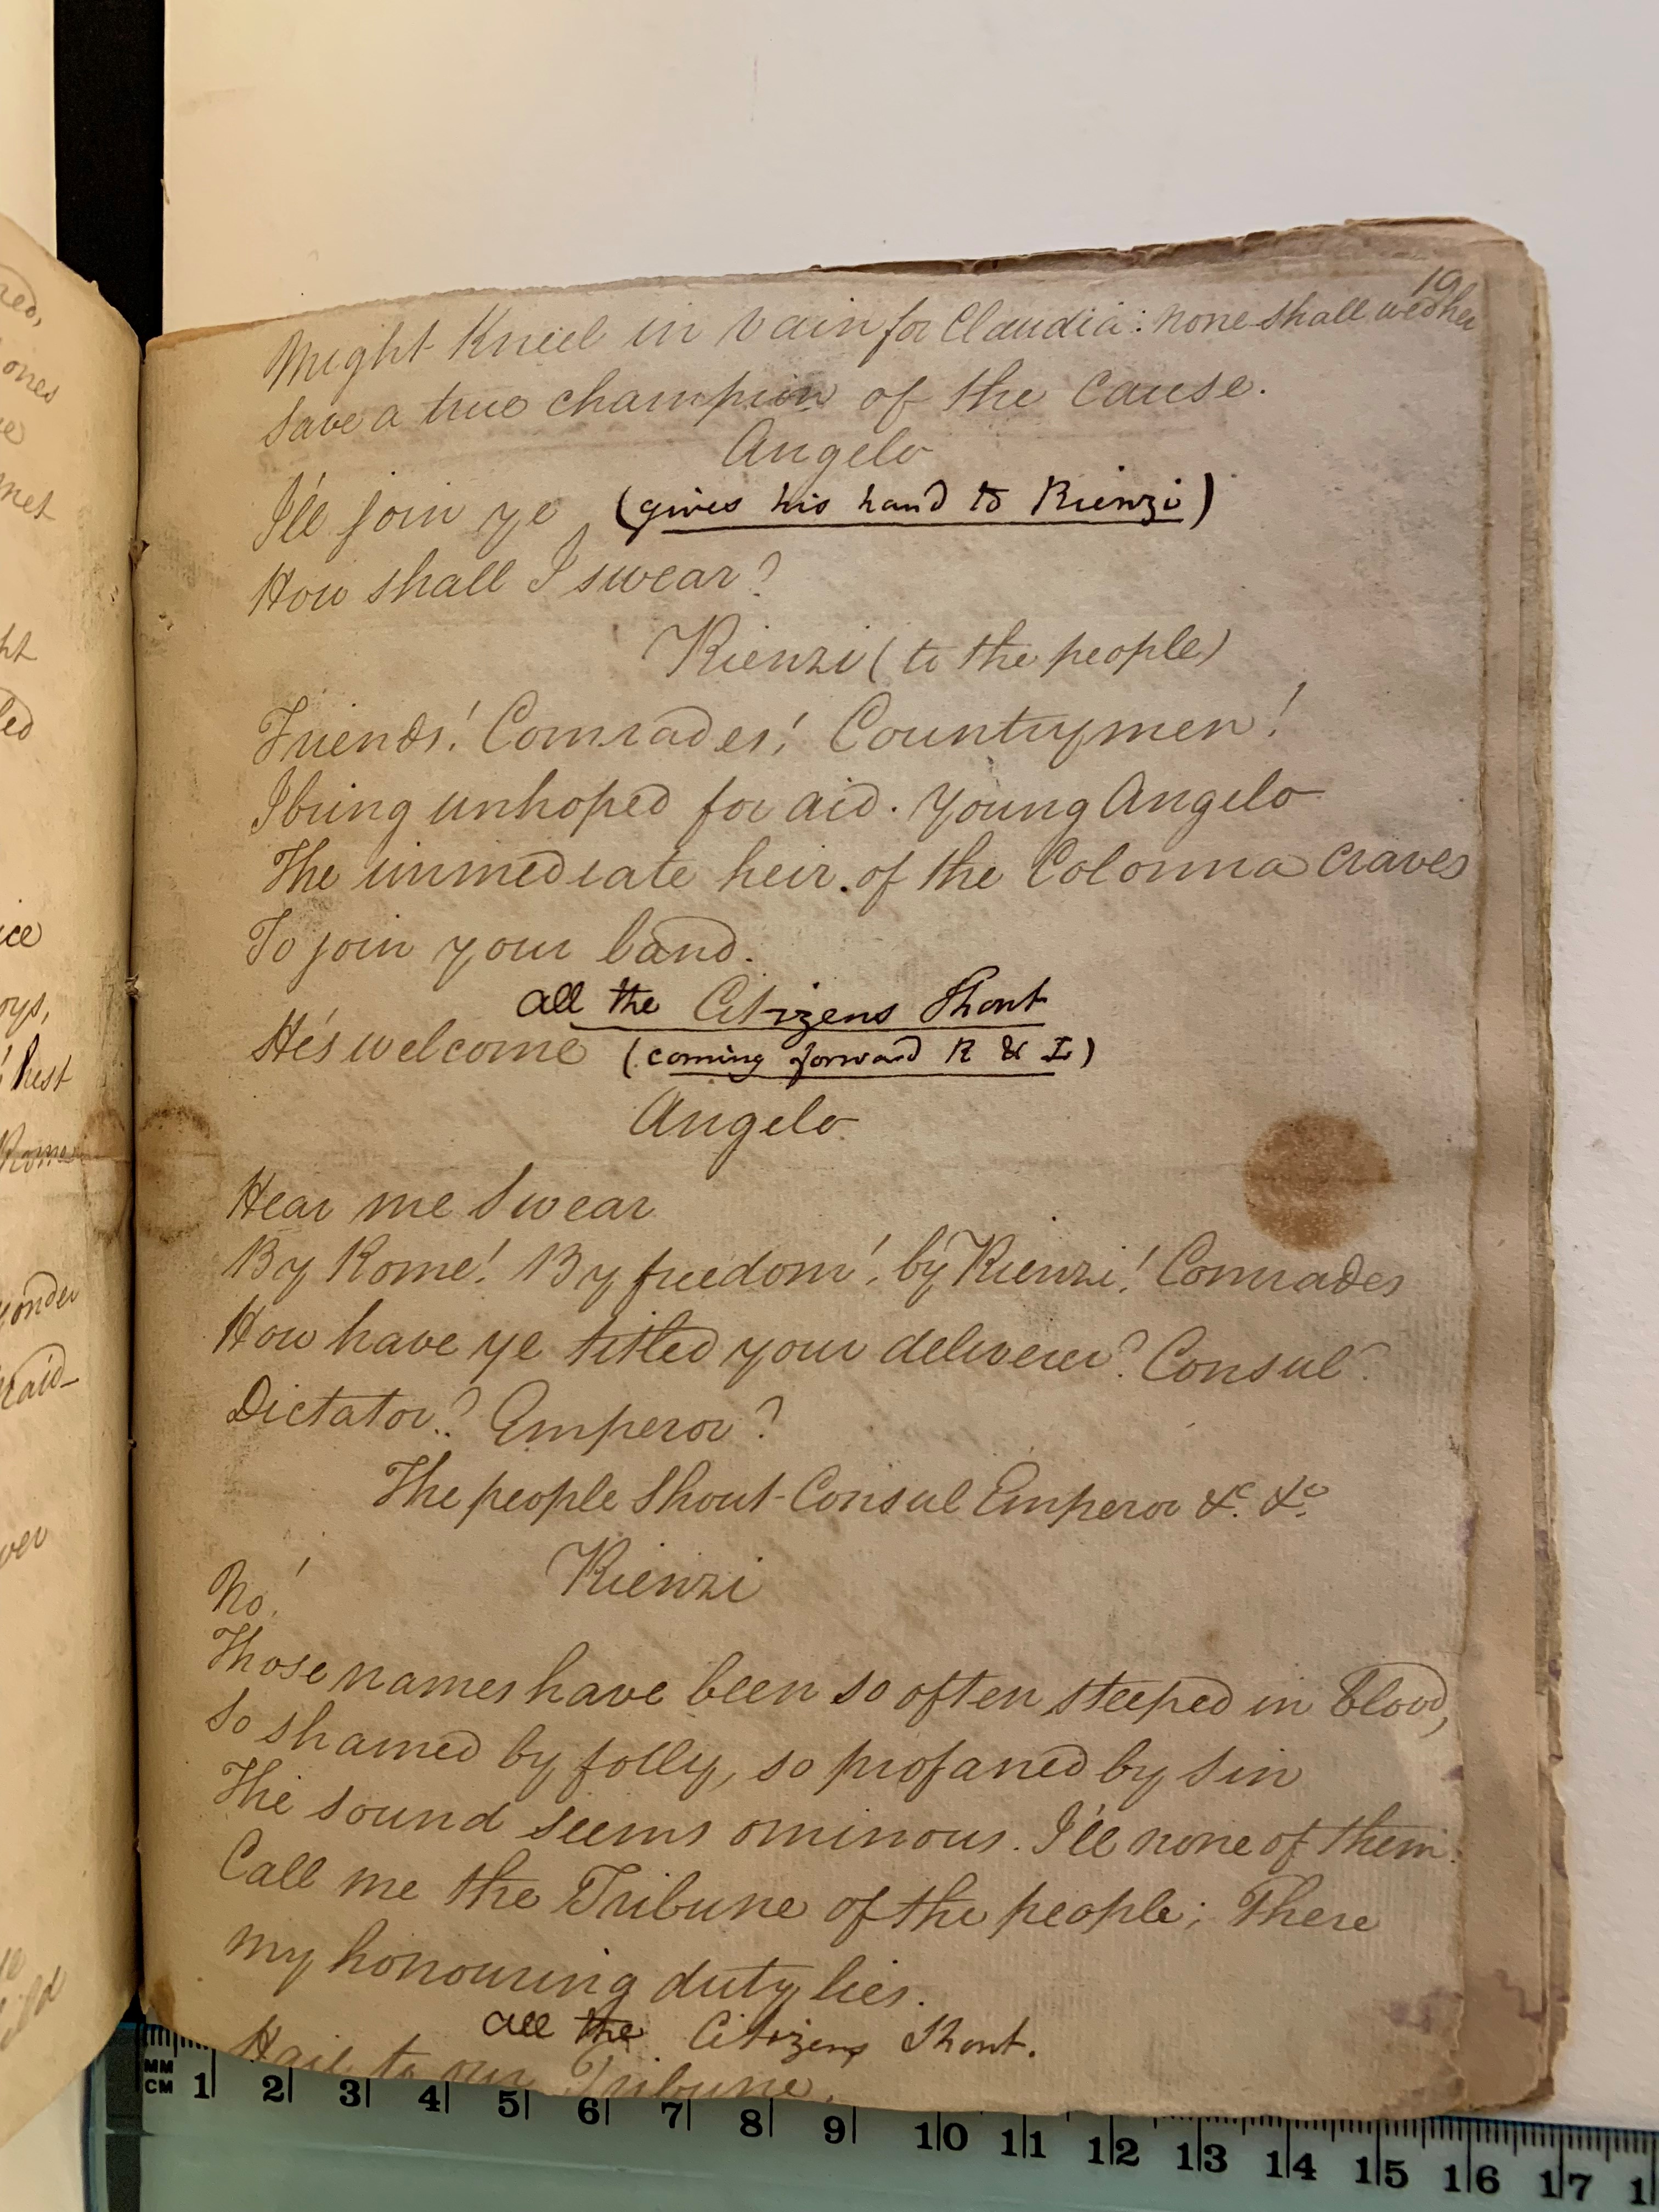 19
Might Kneel in vain for Claudia: none shall wed her
Save a true champion of the Cause.
Angelo
I'll join ye (gives his hand to Rienzi)
How shall I swear?
Rienzi (to the people)
Friends! Comrades! Countrymen!
I bring unhoped for aid. Young Angelo
The immediate heir of the Colonna craves
To join your band.
All the Citizens Shout
He's welcome (coming forward R & L)
Angelo
Hear me Swear
By Rome! By freedom! by Rienzi! Comrades
How have ye titled your deliverer? Consul?
Dictator? Emperor?
The people Shout - Consul Emperor &c. &c.
Rienzi
No!
Those names have been so often steeped in blood,
So shamed by folly, so profaned by Sin
The sound seems ominous. I'll none of them.
Call me the Tribune of the people; There
My honouring duty lies.
All the Citizens Shout.
Hail to our Tribune.
red,
ones
met
ice
hest
Rome
yonder
MM
CM 1 2 3 4 5 6 7 8 9 10 11 12 13 14 15 16 17 1